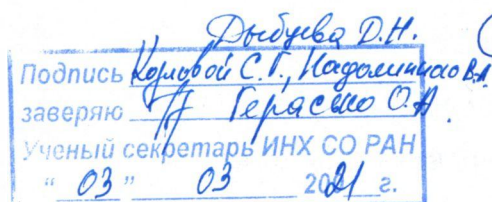 Дыбцева Д.Н.
Подпись Козловой С.Г., Надолинного В.А.
заверяю Герасько О.А.
Ученый секретарь ИНХ СО РАН
" 03 " 03 2021 г.